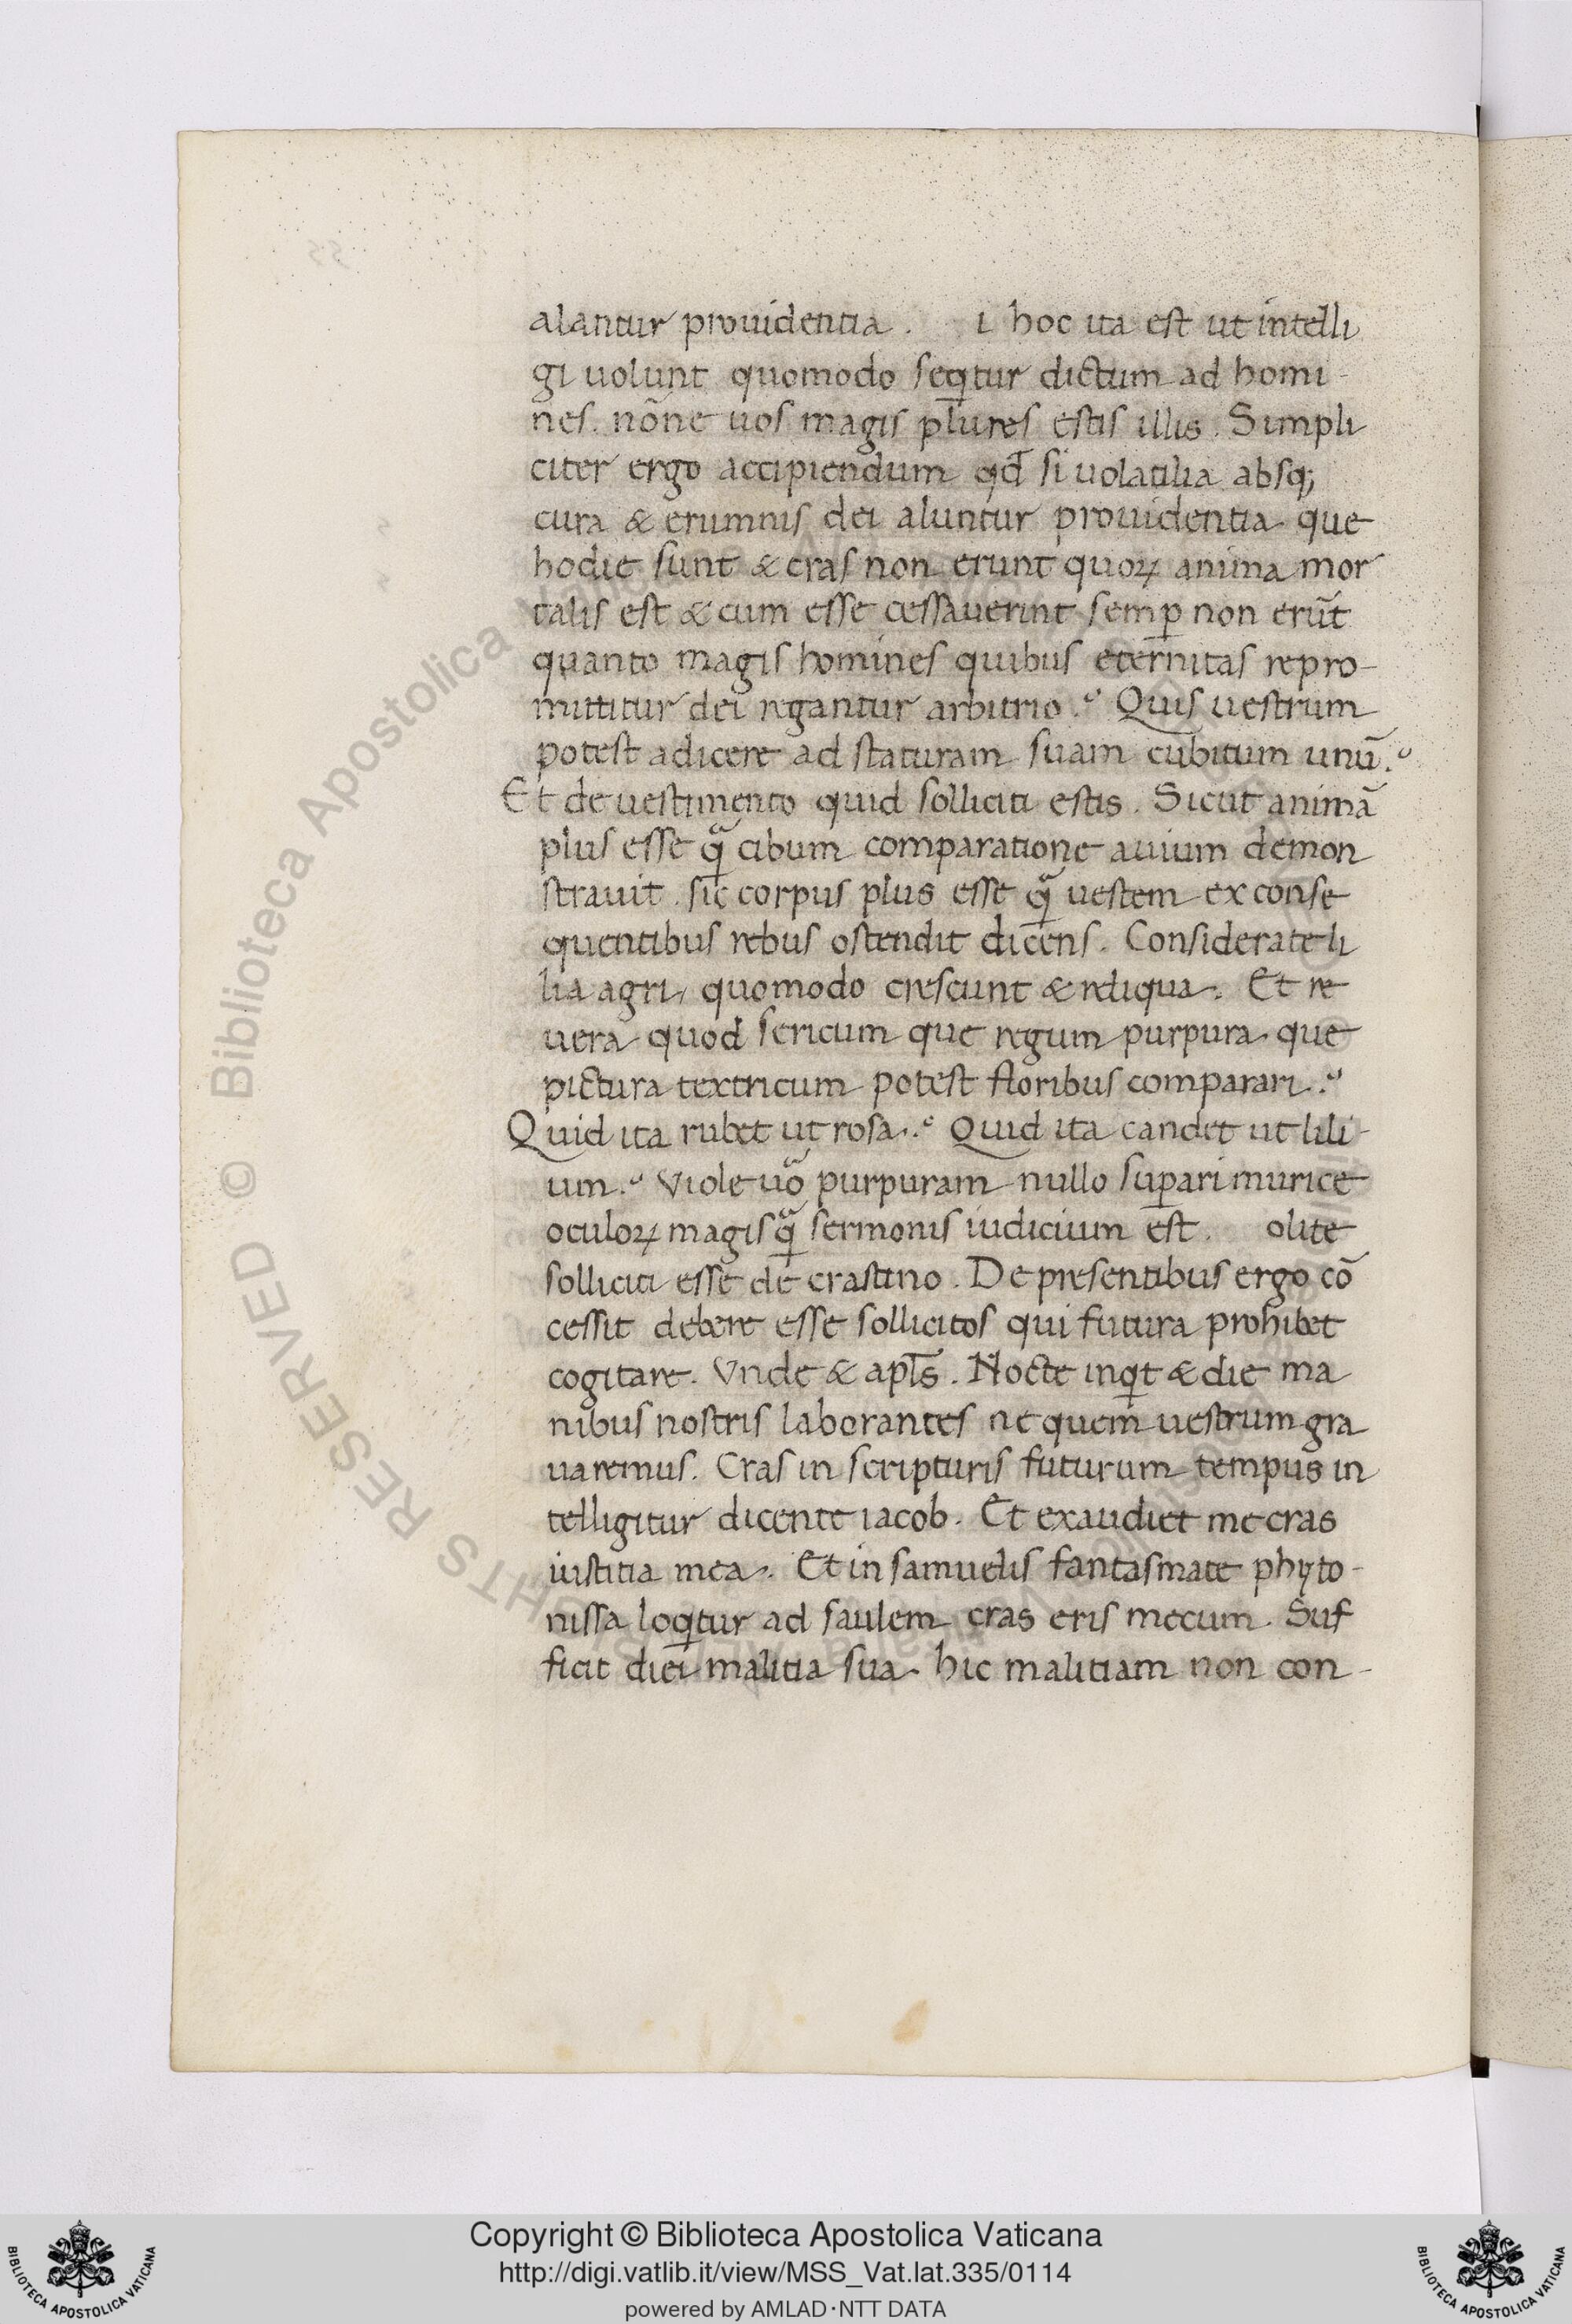 alantur prouidentia . i hoc ita est ut intelli
gi uolunt quomodo seq̅tur dictum ad homi-
nes . nōne uos magis plures estis illis . Simpli
citer ergo accipiendum qd̅ si uolatilia absq;
cura & erumnis dei aluntur prouidentia que
hodie sunt & cras non erunt quoꝝ anima mor
talis est & cum esse cessauerint semꝑ non erūt
quanto magis homines quibus eternitas repro-
mittitur dei regantur arbitrio .? Quis uestrum
potest adicere ad staturam suam cubitum unū .?
Et de uestimento quid solliciti estis . Sicut animā
plus esse qᷓ cibum comparatione auium demon
strauit . sic corpus plus esse qᷓ uestem ex conse
quentibus rebus ostendit dicens . Considerate li
lia agri, quomodo crescunt & reliqua . Et re
uera quod sericum que regum purpura . que
pictura textricum potest floribus comparari .?
Quid ita rubet ut rosa .? Quid ita candet ut lili-
um .? Viole uoᷓ purpuram nullo suꝑari murice
oculoꝝ magis qᷓ sermonis iudicium est . olite
solliciti esse de crastino . De presentibus ergo cō
cessit debere esse sollicitos qui futura prohibet
cogitare . Vnde & apl̅s . Nocte inq̅t & die ma
nibus nostris laborantes ne quem uestrum gra
uaremus . Cras in scripturis futurum tempus in
telligitur dicente iacob . Et exaudiet me cras
iustitia mea . Et in samuelis fantasmate phyto-
nissa loq̅tur ad saulem cras eris mecum . Suf
ficit diei malitia sua . hic malitiam non con-
© Biblioteca Apostolica Vaticana
Copyright © Biblioteca Apostolica Vaticana
http://digi.vatlib.it/view/MSS_Vat.lat.335/0114
powered by AMLAD·NTT DATA
BIBLIOTECA APOSTOLICA VATICANA
BIBLIOTECA APOSTOLICA VATICANA